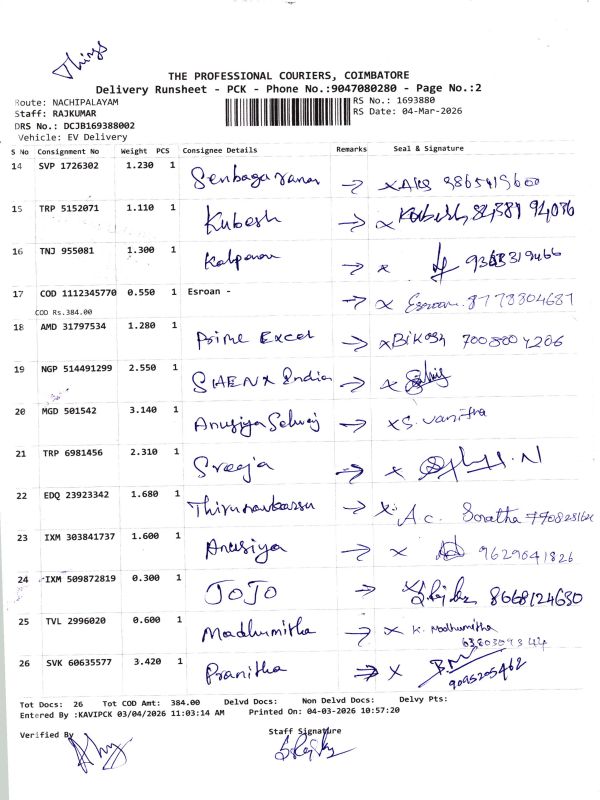 Things
THE PROFESSIONAL COURIERS, COIMBATORE
Delivery Runsheet - PCK - Phone No.:9047080280 - Page No.:2
Route: NACHIPALAYAM RS No.: 1693880
Staff: RAJKUMAR RS Date: 04-Mar-2026
DRS No.: DCJB169388002
Vehicle: EV Delivery
S No Consignment No Weight PCS Consignee Details Remarks Seal & Signature
14 SVP 1726302 1.230 1 Senbaga → x 9865419600
15 TRP 5152071 1.110 1 Kubesh → x Kubesh
16 TNJ 955081 1.300 1 →x
17 COD 1112345770 0.550 1 Esroan - → x Esroan 8778804687
COD Rs.384.00
18 AMD 31797534 1.280 1 Prime Excel → x Bikash 7008004206
19 NGP 514491299 2.550 1 India → x
20 MGD 501542 3.140 1 Anusiya Selvaj → x S. Vanitha
21 TRP 6981456 2.310 1 Sreeja → x
22 EDQ 23923342 1.680 1 → x
23 IXM 303841737 1.600 1 Anusiya → x 9629041826
24 IXM 509872819 0.300 1 JOJO → x 8668124630
25 TVL 2996020 0.600 1 Madhumitha → x K. Madhumitha
26 SVK 60635577 3.420 1 Pranitha → x 9095205462
Tot Docs: 26 Tot COD Amt: 384.00 Delvd Docs: Non Delvd Docs: Delvy Pts:
Entered By :KAVIPCK 03/04/2026 11:03:14 AM Printed On: 04-03-2026 10:57:20
Verified By Staff Signature